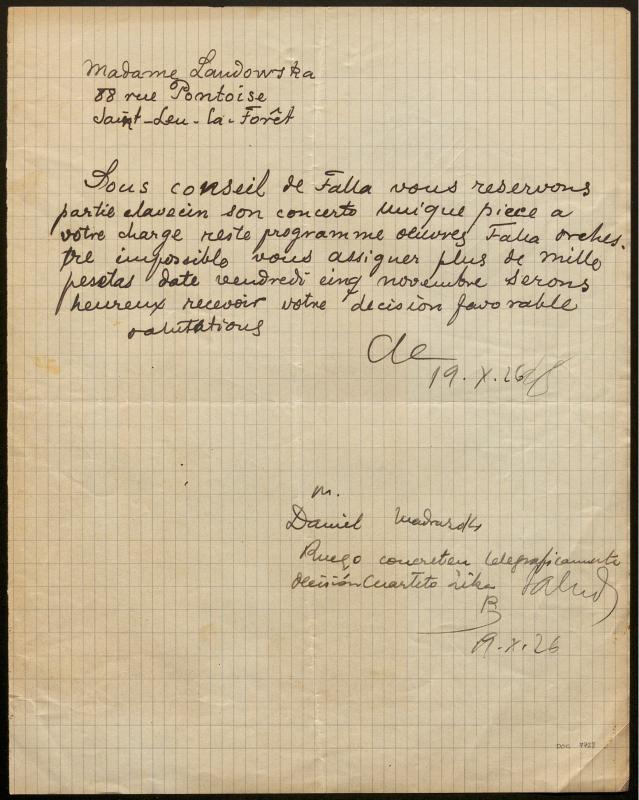 Madame Landowska
88 rue Pontoise
Saint-Leu-la-Forêt
Sous conseil de Falla vous reservons
partie clavecin son concerto unique piece a
votre charge reste programme oeuvres Falla orches-
tre impossible vous assigner plus de mille
pesetas date vendredi cinq novembre serons
heureux recevoir votre decision favorable
salutations
19.X.26
M.
Daniel
Ruego concreten telegraficamente
decisión Cuarteto Zika Salud
B
19.X.26
DOC